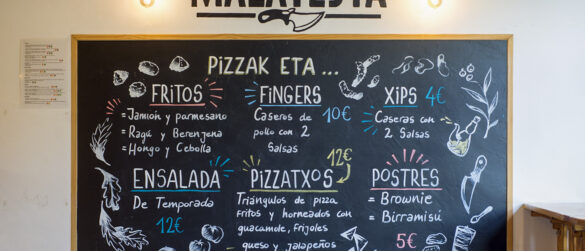 MALATESTA
PIZZAK ETA ...
FRITOS
= Jamón y parmesano
= Ragú y Berenjena
= Hongo y Cebolla
FiNGERS
Caseros de
pollo con 2
Salsas
10€
XiPS 4€
Caseras con
2 Salsas
ENSALADA
De Temporada
12€
PIZZATXOS
12€
Triángulos de pizza
fritos y horneados con
guacamole, frijoles
queso y jalapeños
POSTRES
= Brownie
= Birramisú
5€